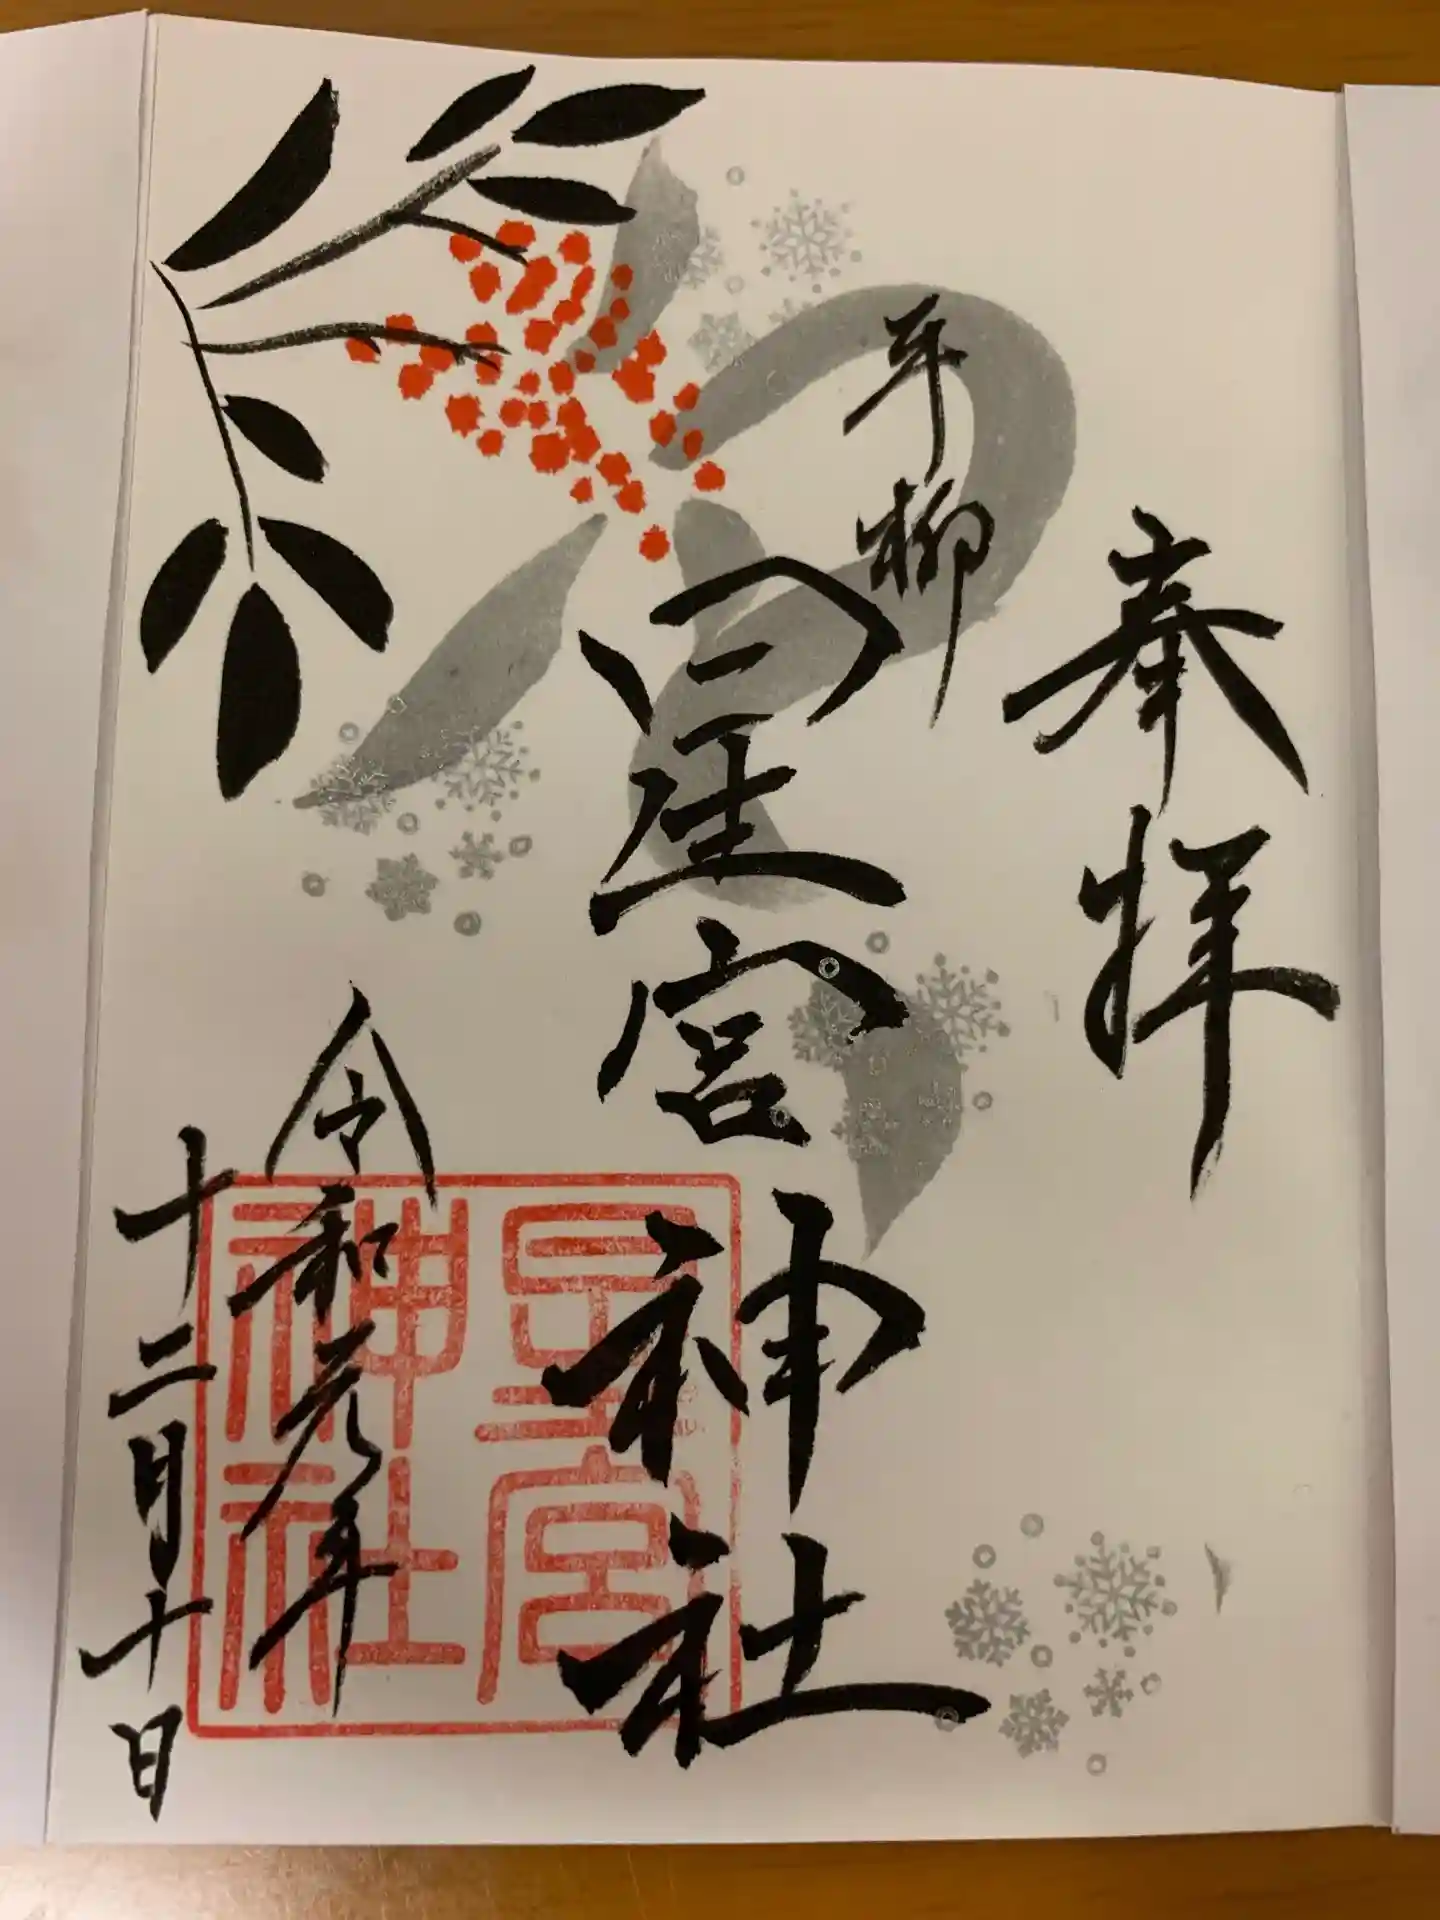 奉拝
平柳
星宮神社
星宮
神社
令和元年
十二月十日